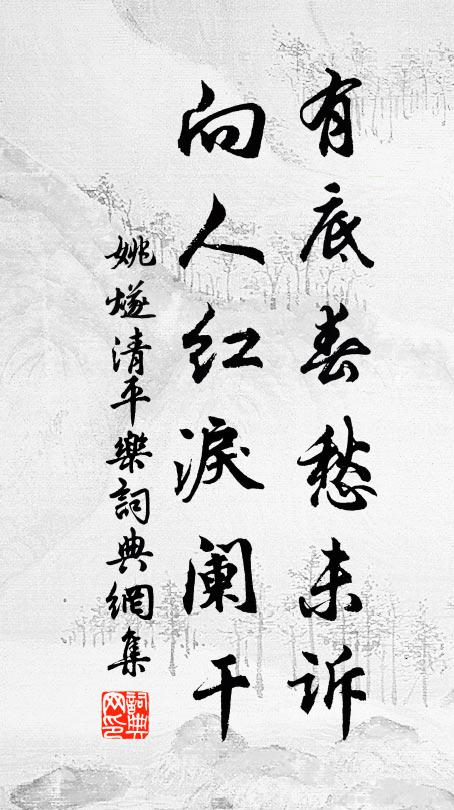 有底春愁未訴
向人紅淚闌干
姚燧清平樂詞典網集
詞典網印